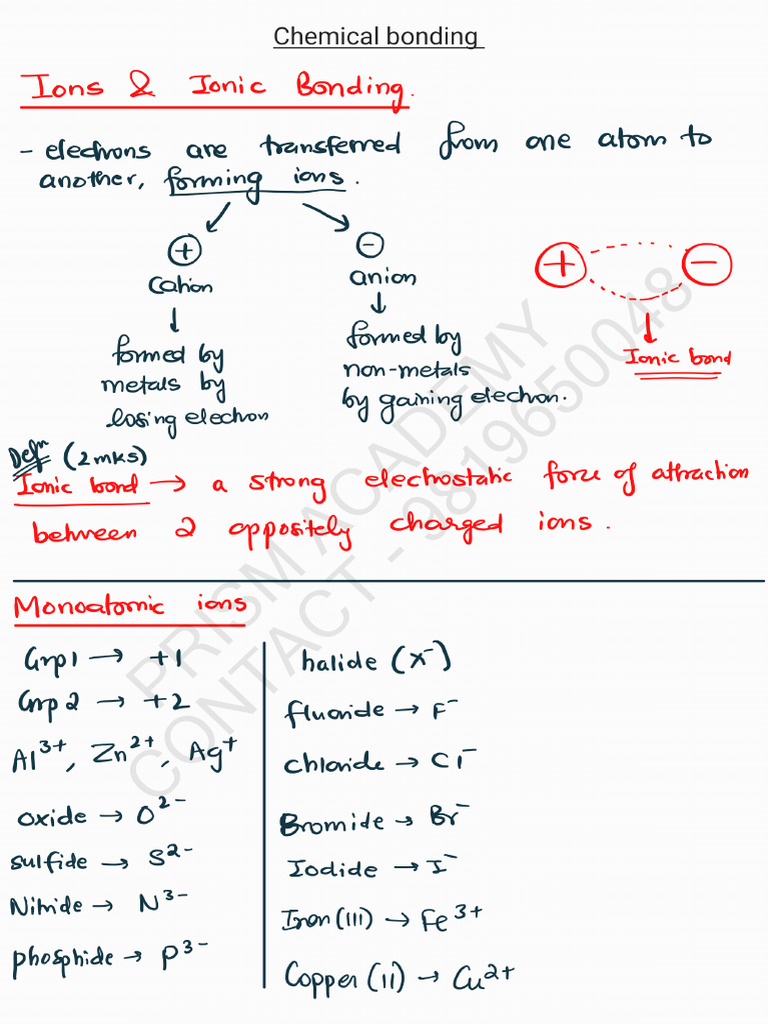 Chemical bonding
Ions & Ionic Bonding.
- electrons are transferred from one atom to
another, forming ions.
+
cation
↓
formed by
metals by
losing electron
-
anion
↓
formed by
non-metals
by gaining electron.
+ -
Ionic bond
Defn (2mks)
Ionic bond → a strong electrostatic force of attraction
between 2 oppositely charged ions.
PRISM ACADEMY
CONTACT - 9819650048
Monoatomic ions
Grp1 → +1
Grp 2 → +2
Al³⁺, Zn²⁺, Ag⁺
oxide → O²⁻
sulfide → S²⁻
Nitride → N³⁻
phosphide → P³⁻
halide (X⁻)
fluoride → F⁻
chloride → Cl⁻
Bromide → Br⁻
Iodide → I⁻
Iron (III) → Fe³⁺
Copper (II) → Cu²⁺